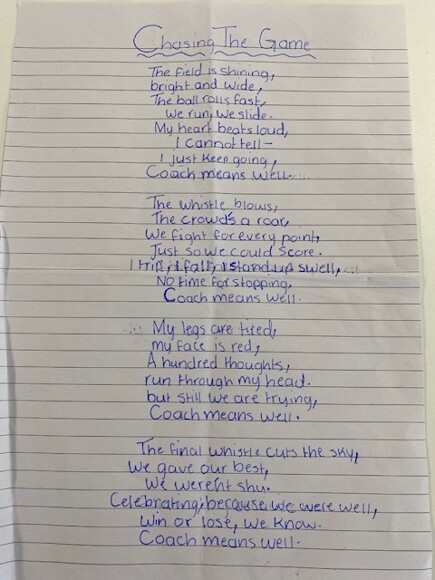 Chasing The Game
The field is shining,
bright and wide,
The ball rolls fast,
We run, we slide.
My heart beats loud,
I cannot tell-
I just keep going,
Coach means well.....
The whistle blows,
The crowd's a roar,
We fight for every point,
Just so we could score.
I trip, I fall, I stand up swell,
No time for stopping,
Coach means well.
... My legs are tired,
my face is red,
A hundred thoughts,
run through my head.
but still we are trying,
Coach means well.
The final whistle cuts the sky,
We gave our best,
We weren't shy.
Celebrating, because we were well,
Win or lose, we know.
Coach means well.